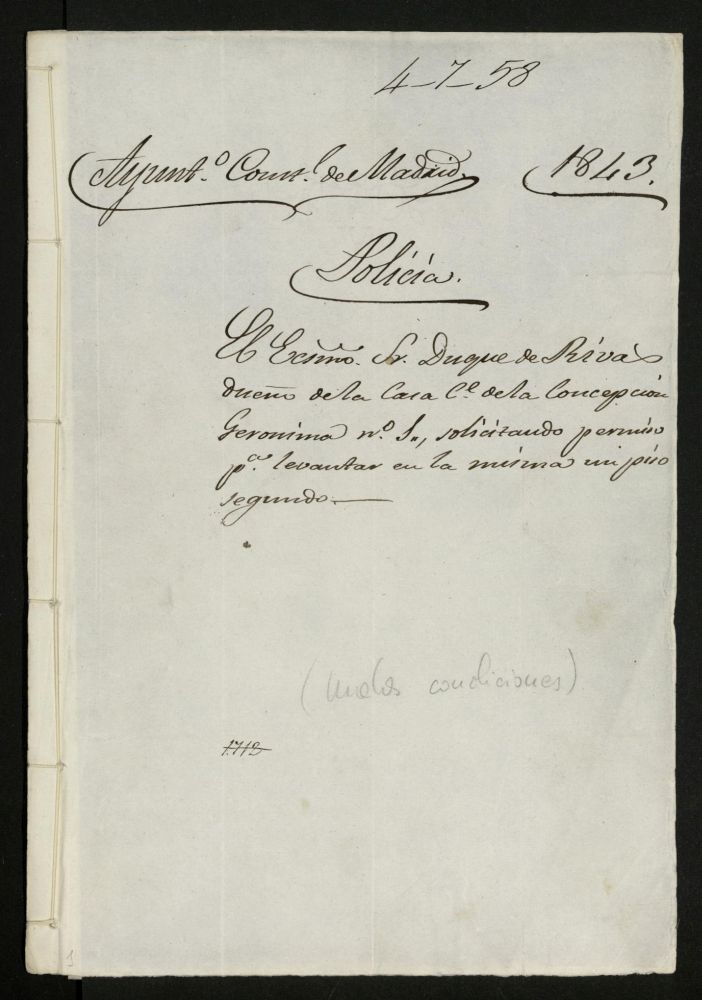 4-7-58
Ayunt.º Const.l de Madrid. 1843.
Policía.
El Ecsmo. Sr. Duque de Rivas
dueño de la Casa C.e de la Concepcion
Geronima n.º 1., solicitando permiso
p.a levantar en la misma un piso
segundo.—
(malas condiciones)
1712
1